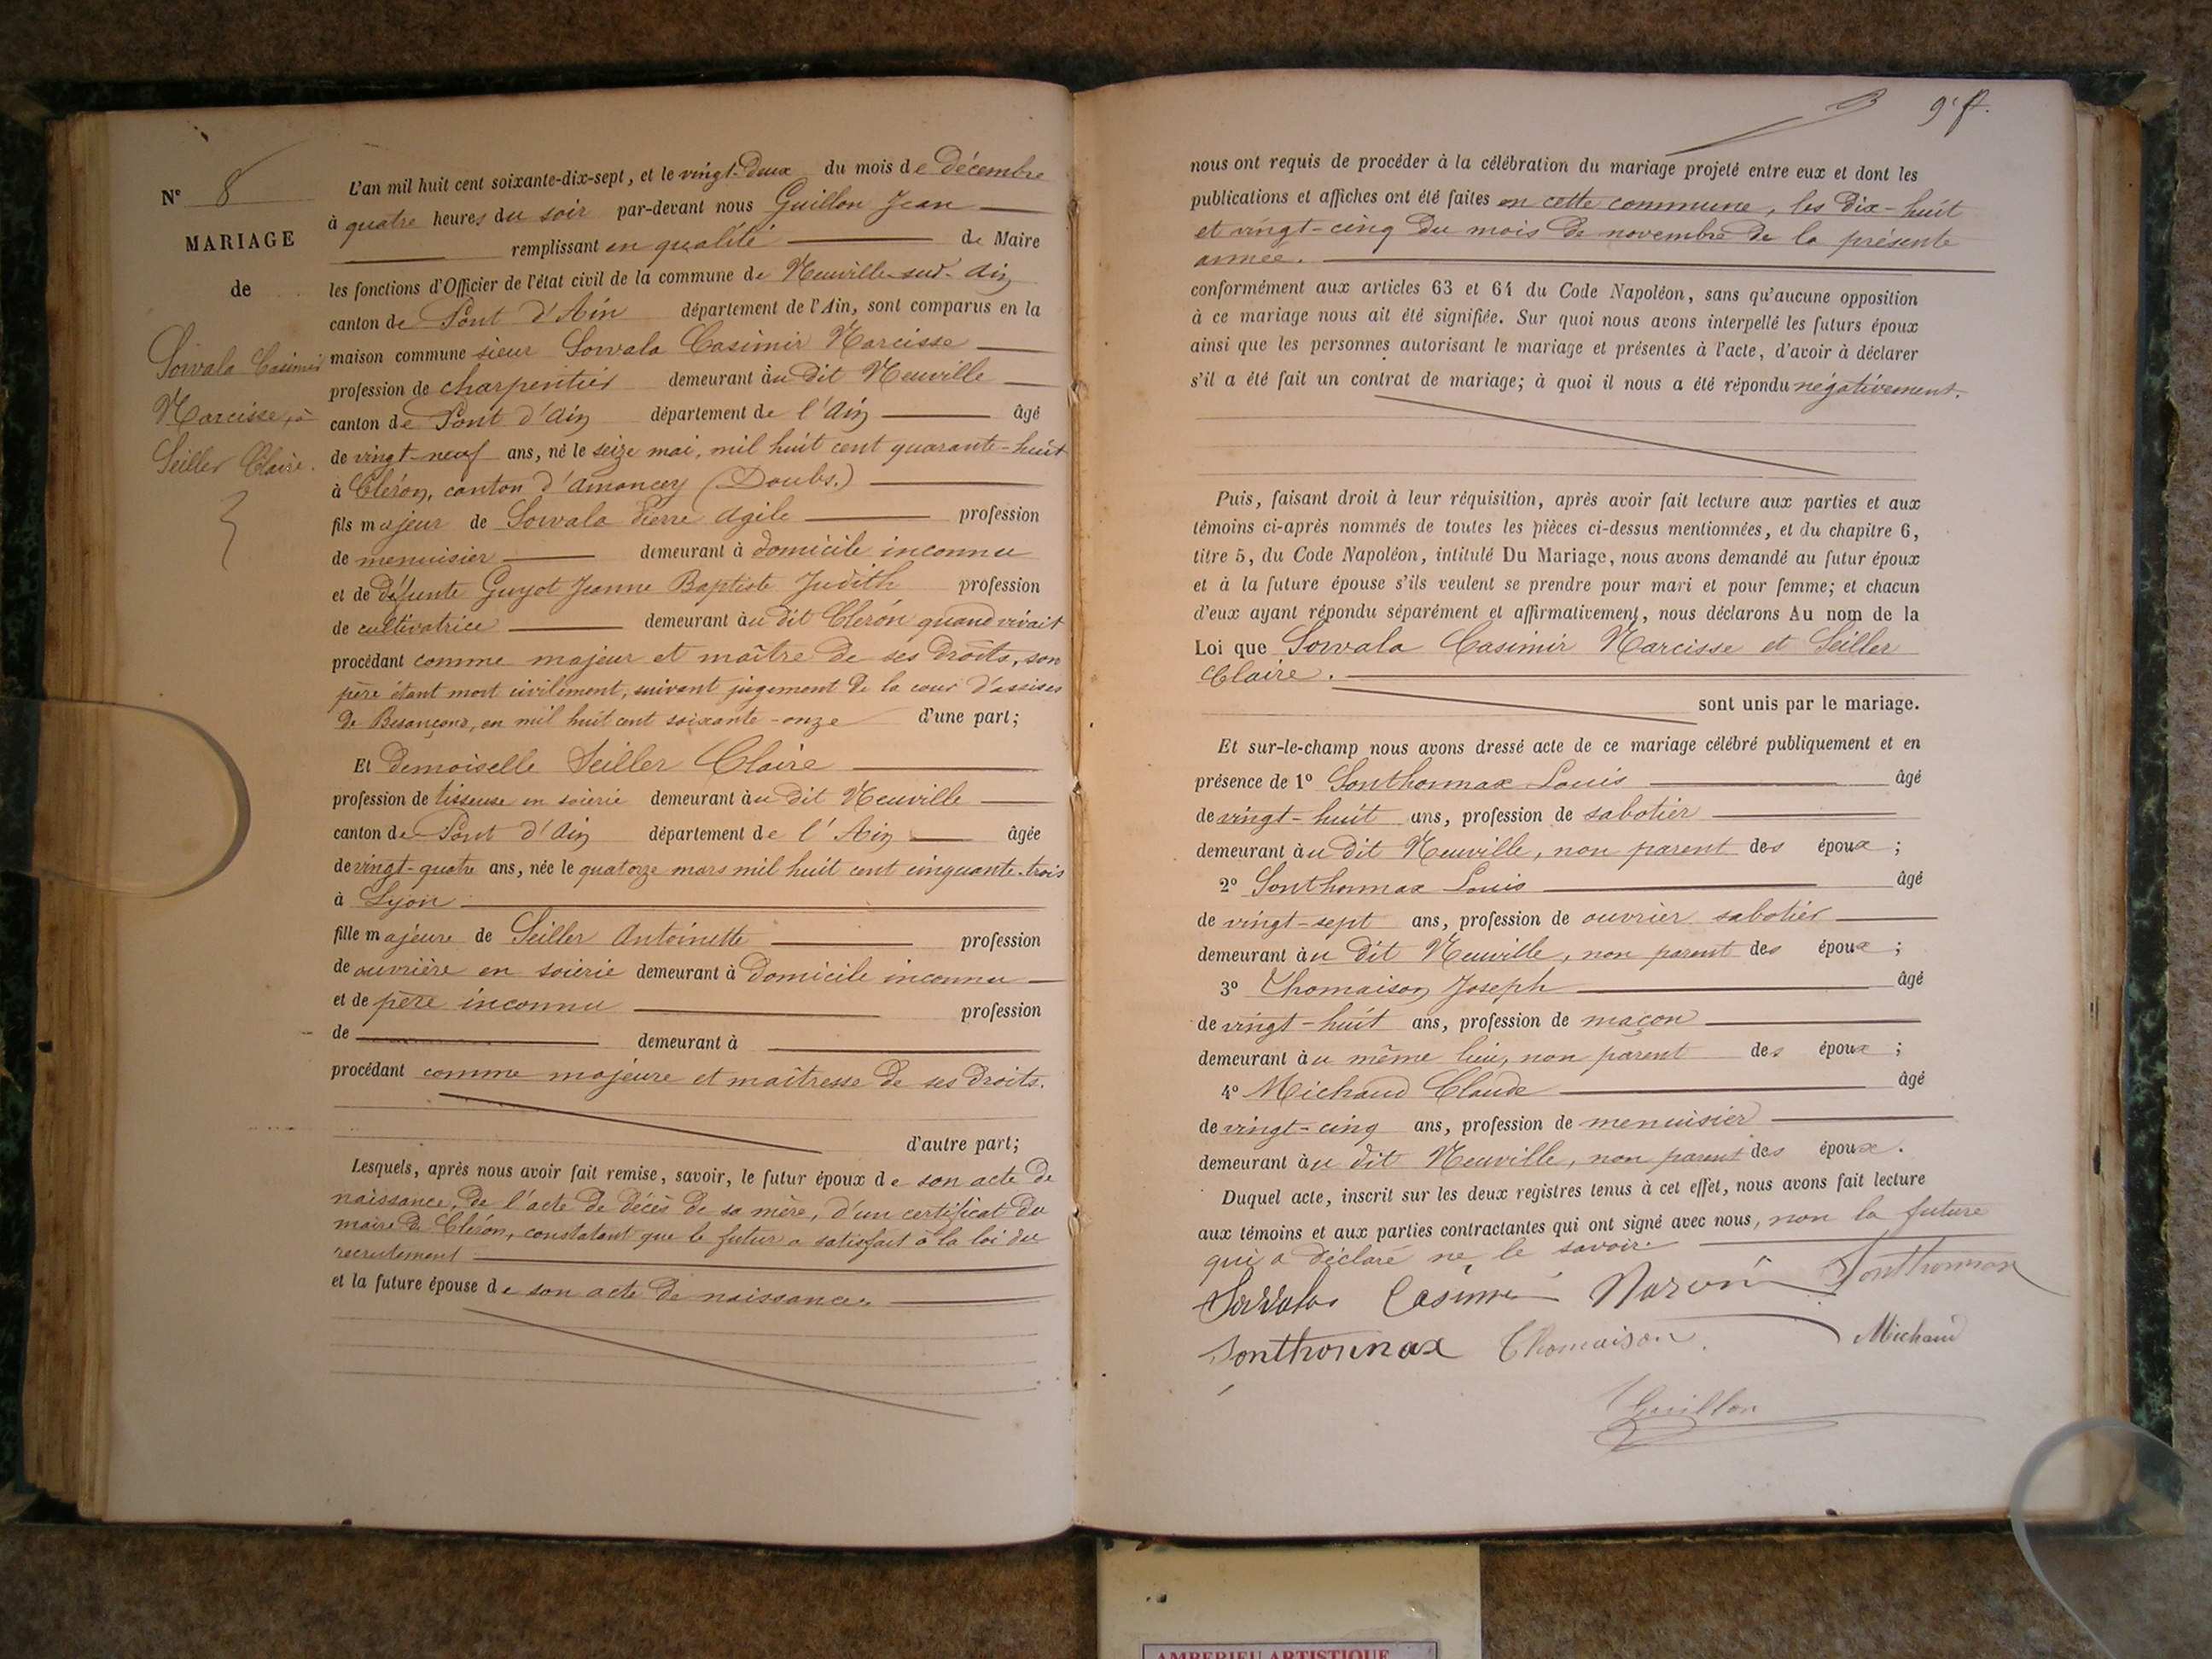 Nº 8
MARIAGE
de
Sorvala Casimir
Narcisse, à
Seiller Claire.
L'an mil huit cent soixante-dix-sept, et le vingt-deux du mois de décembre
à quatre heures du soir par-devant nous Guillon Jean
remplissant en qualité de Maire
les fonctions d'Officier de l'état civil de la commune de Neuville-sur-Ain
canton de Pont d'Ain département de l'Ain, sont comparus en la
maison commune sieur Sorvala Casimir Narcisse
profession de charpentier demeurant au dit Neuville
canton de Pont d'Ain département de l'Ain âgé
de vingt-neuf ans, né le seize mai, mil huit cent quarante-huit
à Cléron, canton d'Amancey (Doubs.)
fils majeur de Sorvala Pierre Agile profession
de menuisier demeurant à domicile inconnu
et de défunte Guyot Jeanne Baptiste Judith profession
de cultivatrice demeurant au dit Cléron quand vivait
procédant comme majeur et maître de ses droits, son
père étant mort civilement, suivant jugement de la cour d'assises
de Besançons, en mil huit cent soixante-onze d'une part;
Et demoiselle Seiller Claire
profession de tisseuse en soierie demeurant au dit Neuville
canton de Pont d'Ain département de l'Ain âgée
de vingt-quatre ans, née le quatorze mars mil huit cent cinquante-trois
à Lyon
fille majeure de Seiller Antoinette profession
de ouvrière en soierie demeurant à domicile inconnu
et de père inconnu profession
de demeurant à
procédant comme majeure et maîtresse de ses droits.
d'autre part;
Lesquels, après nous avoir fait remise, savoir, le futur époux de son acte de
naissance, de l'acte de décès de sa mère, d'un certificat du
maire de Cléron, constatant que le futur a satisfait à la loi du
recrutement
et la future épouse de son acte de naissance.
nous ont requis de procéder à la célébration du mariage projeté entre eux et dont les
publications et affiches ont été faites en cette commune, les dix-huit
et vingt-cinq du mois de novembre de la présente
année.
conformément aux articles 63 et 64 du Code Napoléon, sans qu'aucune opposition
à ce mariage nous ait été signifiée. Sur quoi nous avons interpellé les futurs époux
ainsi que les personnes autorisant le mariage et présentes à l'acte, d'avoir à déclarer
s'il a été fait un contrat de mariage; à quoi il nous a été répondu négativement.
Puis, faisant droit à leur réquisition, après avoir fait lecture aux parties et aux
témoins ci-après nommés de toutes les pièces ci-dessus mentionnées, et du chapitre 6,
titre 5, du Code Napoléon, intitulé Du Mariage, nous avons demandé au futur époux
et à la future épouse s'ils veulent se prendre pour mari et pour femme; et chacun
d'eux ayant répondu séparément et affirmativement, nous déclarons Au nom de la
Loi que Sorvala Casimir Narcisse et Seiller
Claire.
sont unis par le mariage.
Et sur-le-champ nous avons dressé acte de ce mariage célébré publiquement et en
présence de 1º Sonthonnax Louis âgé
de vingt-huit ans, profession de sabotier
demeurant au dit Neuville, non parent des époux;
2º Sonthonnax Louis âgé
de vingt-sept ans, profession de ouvrier sabotier
demeurant au dit Neuville, non parent des époux;
3º Thomaison Joseph âgé
de vingt-huit ans, profession de maçon
demeurant au même lieu, non parent des époux;
4º Michaud Claude âgé
de vingt-cinq ans, profession de menuisier
demeurant au dit Neuville, non parent des époux.
Duquel acte, inscrit sur les deux registres tenus à cet effet, nous avons fait lecture
aux témoins et aux parties contractantes qui ont signé avec nous, non la future
qui a déclaré ne le savoir.
Casimir Sonthonnax
Sonthonnax Thomaison Michaud
Guillon
AMBERIEU ARTISTIQUE